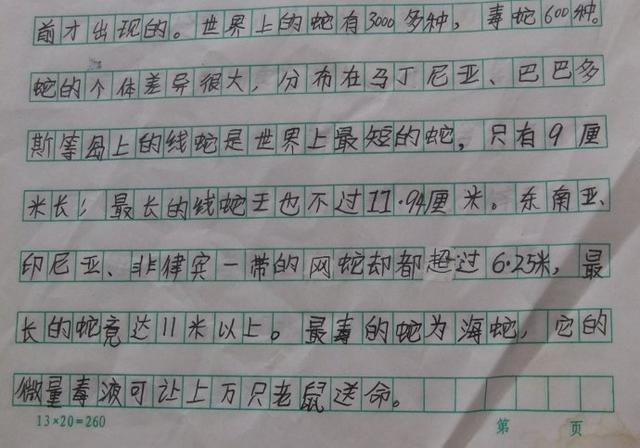 前才出现的。世界上的蛇有3000多种，毒蛇600种。
蛇的个体差异很大，分布在马丁尼亚、巴巴多
斯等岛上的线蛇是世界上最短的蛇，只有9厘
米长；最长的线蛇王也不过11.94厘米。东南亚、
印尼亚、非律宾一带的网蛇却都超过6.25米，最
长的蛇竟达11米以上。最毒的蛇为海蛇，它的
微量毒液可让上万只老鼠送命。
13×20=260
第 页